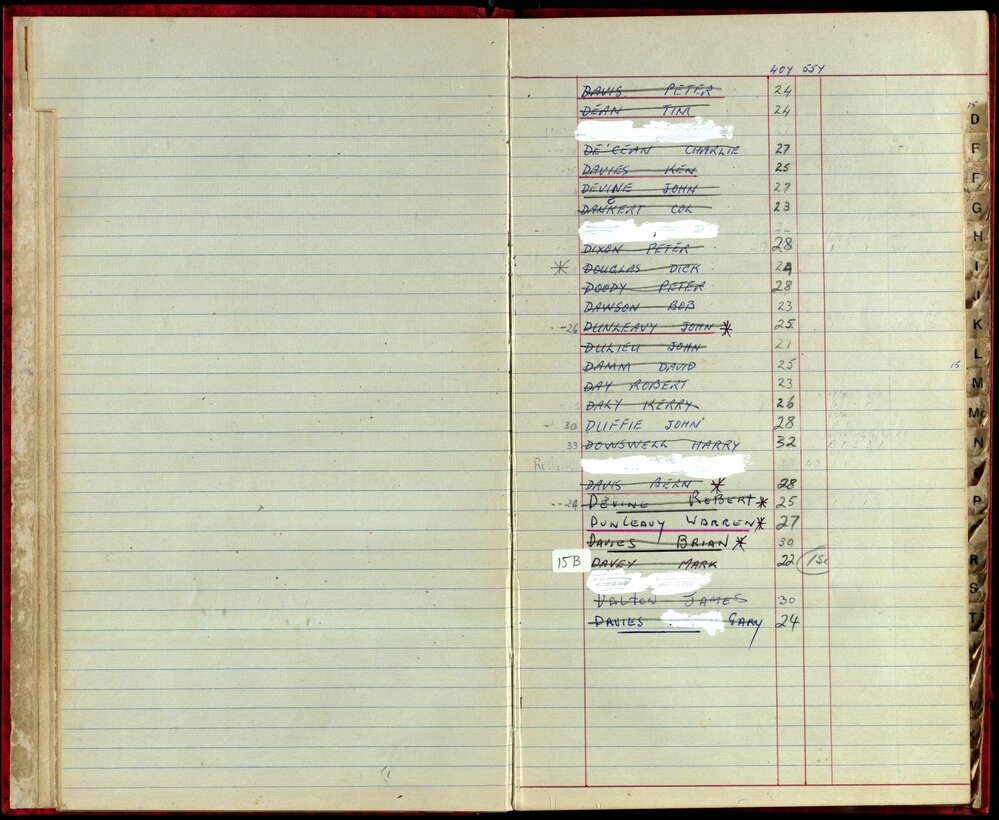 40Y 55Y
DAVIS PETER 24
DEAN TIM 24
DE'CEAN CHARLIE 27
DAVIES KEN 25
DEVINE JOHN 27
DANKERT COL 23
D
DIXON PETER 28
* DOUGLAS DICK 24
DOODY PETER 28
DAWSON BOB 23
--26 DUNLEAVY JOHN * 25
DULIEU JOHN 27
DAMM DAVID 25
15
DAY ROBERT 23
DALY KERRY 26
- 30 DUFFIE JOHN 28
33 DOWSWELL HARRY 32
DAVIS BERN * 28
---24 DEVINE ROBERT * 25
DUNLEAVY WARREN * 27
DAVIES BRIAN * 30
15B DAVEY MARK 22
DALTON JAMES 30
DAVIES GARY 24
15
D
F
F
G
H
I
J
K
L
M
Mc
N
P
R
S
T